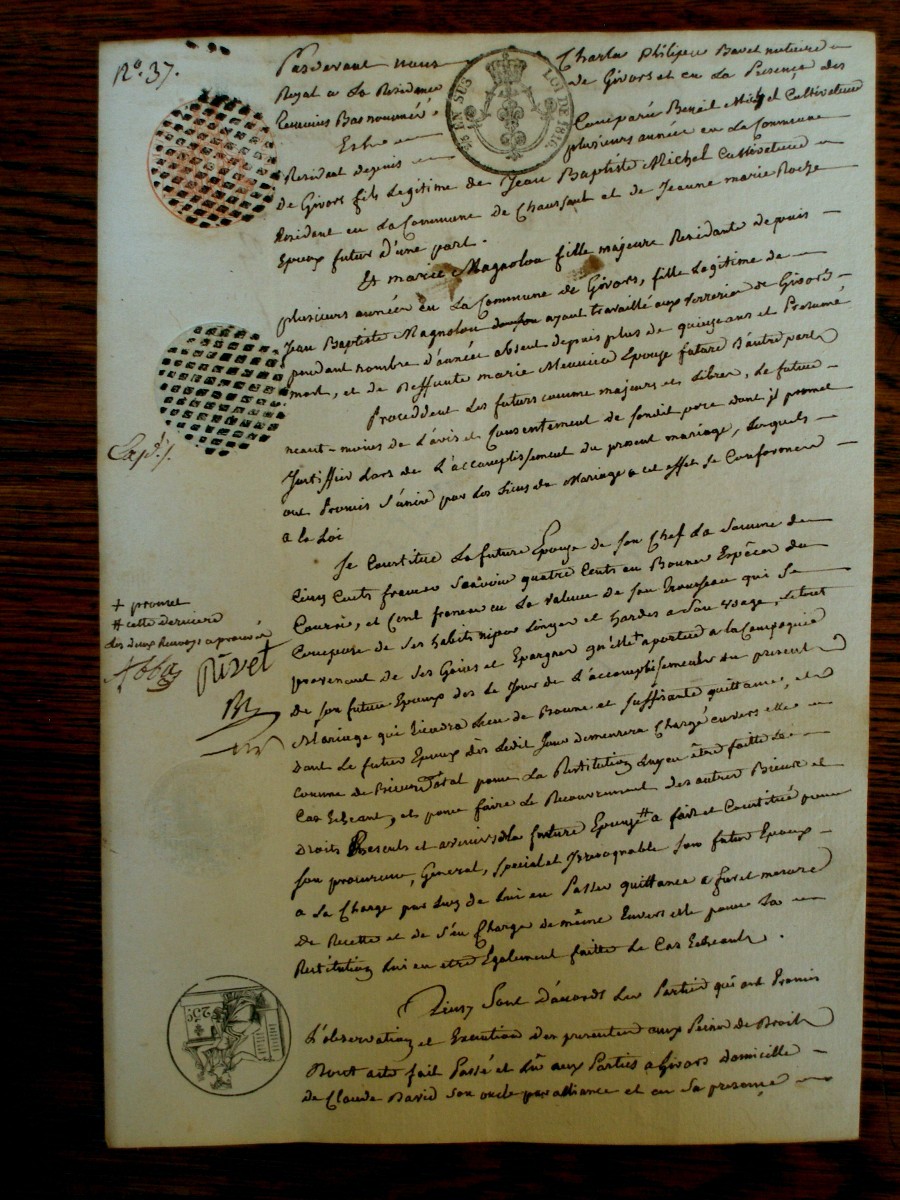 N°. 37.
Pardevant nous Charles Philippe Bavet notaire
Royal a La Residence de Givors et en La Presence des
temoins Bas nommés
¼ EN SUS LOI DE 1816.
Comparu Benoit Michel Cultivateur
Resident depuis plusieurs année en La Commune
De Givors fils Legitime de Jean Baptiste Michel Cultivateur
Resident en La Commune de Chaussant et de Jeanne marie Roche
Epoux futur d'une part.
Et marie Magnolou fille majeure Residante depuis
plusieurs année en La Commune de Givors, fille Legitime de
Jean Baptiste Magnolou ayant travaillé aux verreries de Givors
pendant nombre d'année absent depuis plus de quinze ans et Presumé
mort, et de Deffunte marie Meunier Epouze future D'autre part
Proceddent Les futurs comme majeurs et Libres, Le futur
neant-moins de L'avis et Consentement de sondit pere dont il promet
Justiffier Lors de L'accomplissement du present mariage, Lesquels
ont Promis S'unir par Les Liens du Mariage a cet effet se Conformer
a la Loi
Se Constitue La future Epouze de son Chef La Somme de
Cinq Cents francs Sçavoir quatre Cents en Bonnes Espèces du
Cours, et Cent francs en La valeur de son trousseau qui se
Compose de ses habits nipes Linges et hardes a Son usage, Le tout
provenant de ses Gains et Epargnes qu'elle + aporter a la Compagnie
De son futur Epoux des Le Jour de L'accomplissement du present
Mariage qui tiendra Lieu de Bonne et Suffisante quittance, et
Dont Le futur Epoux dès Ledit Jour demeurera Chargé envers elle
comme de Bien Dotal pour La Restitution Luy en être faitte Le
Cas Echeant, et pour faire Le Recouvrement des autres Biens et
Droits Presents et avenir de la future Epouze # a fait et Constitué pour
son procureur, General, Special et Irrevoquable Son futur Epoux
a La Charge par Luy de Lui en Passer quittance a fur et mesure
De Recette et de s'en Charge de même Envers elle pour La
Restitution Lui en etre Egalement faitte Le Cas Echeant.
Ainsy Sont D'accords Les Parties qui ont Promis
L'observation et Execution des presentes aux Peines de Droit
Dont acte fait Passé et Lû aux Parties a Givors Domicille
de Claude David son oncle par alliance et en Sa presence
Exp.
+ promet
# cette derniere
des deux Renvoys aprouvés
Rivet
25c.